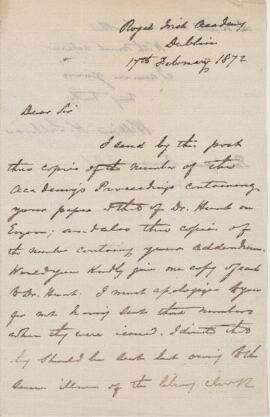 Royal Irish Academy
Dublin
17th February 1872
Dear Sir
I send by this post
three copies of the number of the
Academy's Proceedings containing
your paper & that of Dr. Hunt on
Eozoon; and also three copies of
the number containing your Addendum.
Would you kindly give one copy of each
to Dr. Hunt. I must apologize to you
for not having sent these numbers
when they were issued. I directed that
they should be sent but owing to the
severe illness of the library clerk